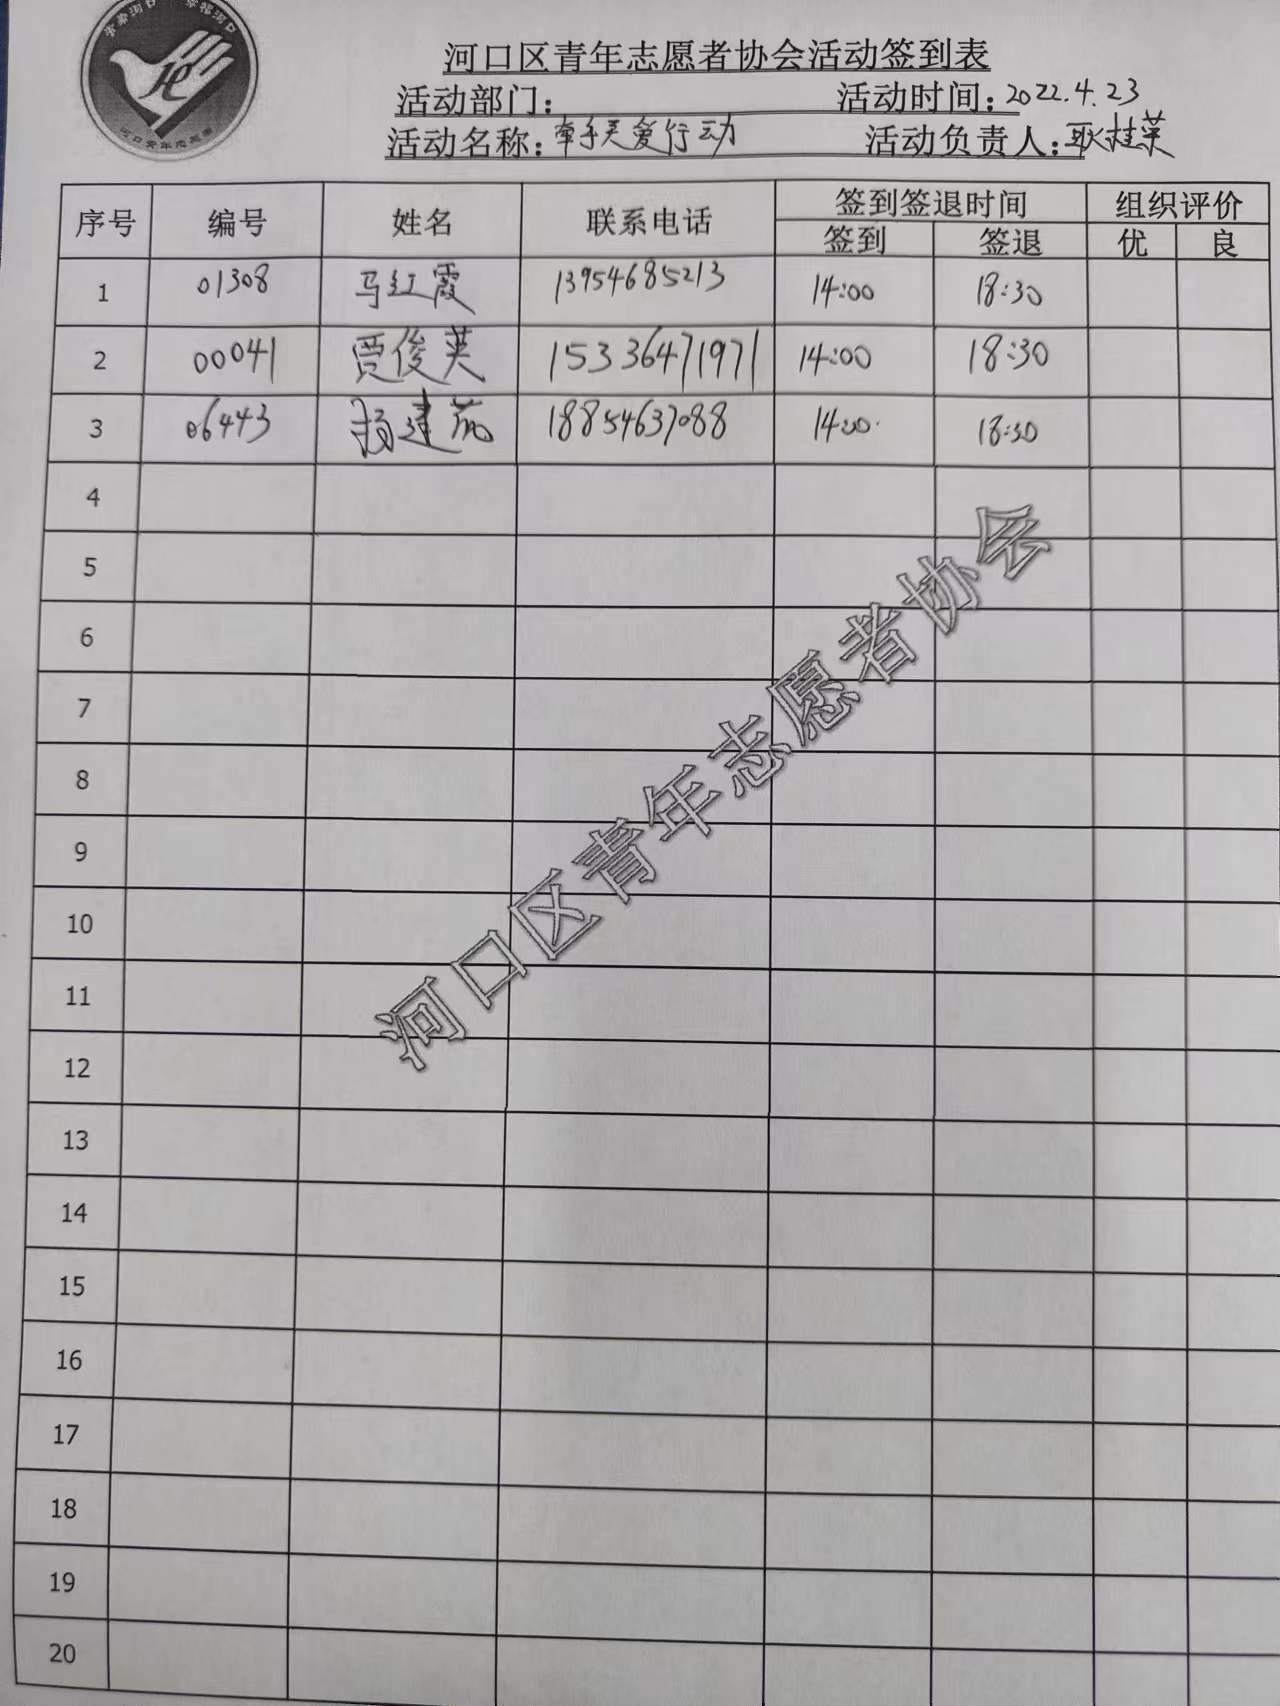 河口区青年志愿者协会活动签到表
活动部门: 活动时间: 2022.4.23
活动名称: 牵手关爱行动 活动负责人: 耿桂英
序号 编号 姓名 联系电话 签到签退时间 组织评价
签到 签退 优 良
1 01308 马红霞 13954685213 14:00 18:30
2 00041 贾俊英 15336471971 14:00 18:30
3 06443 杨建 18854637088 14:00 18:30
4
5
6
7
8
9
10
11
12
13
14
15
16
17
18
19
20
河口区青年志愿者协会